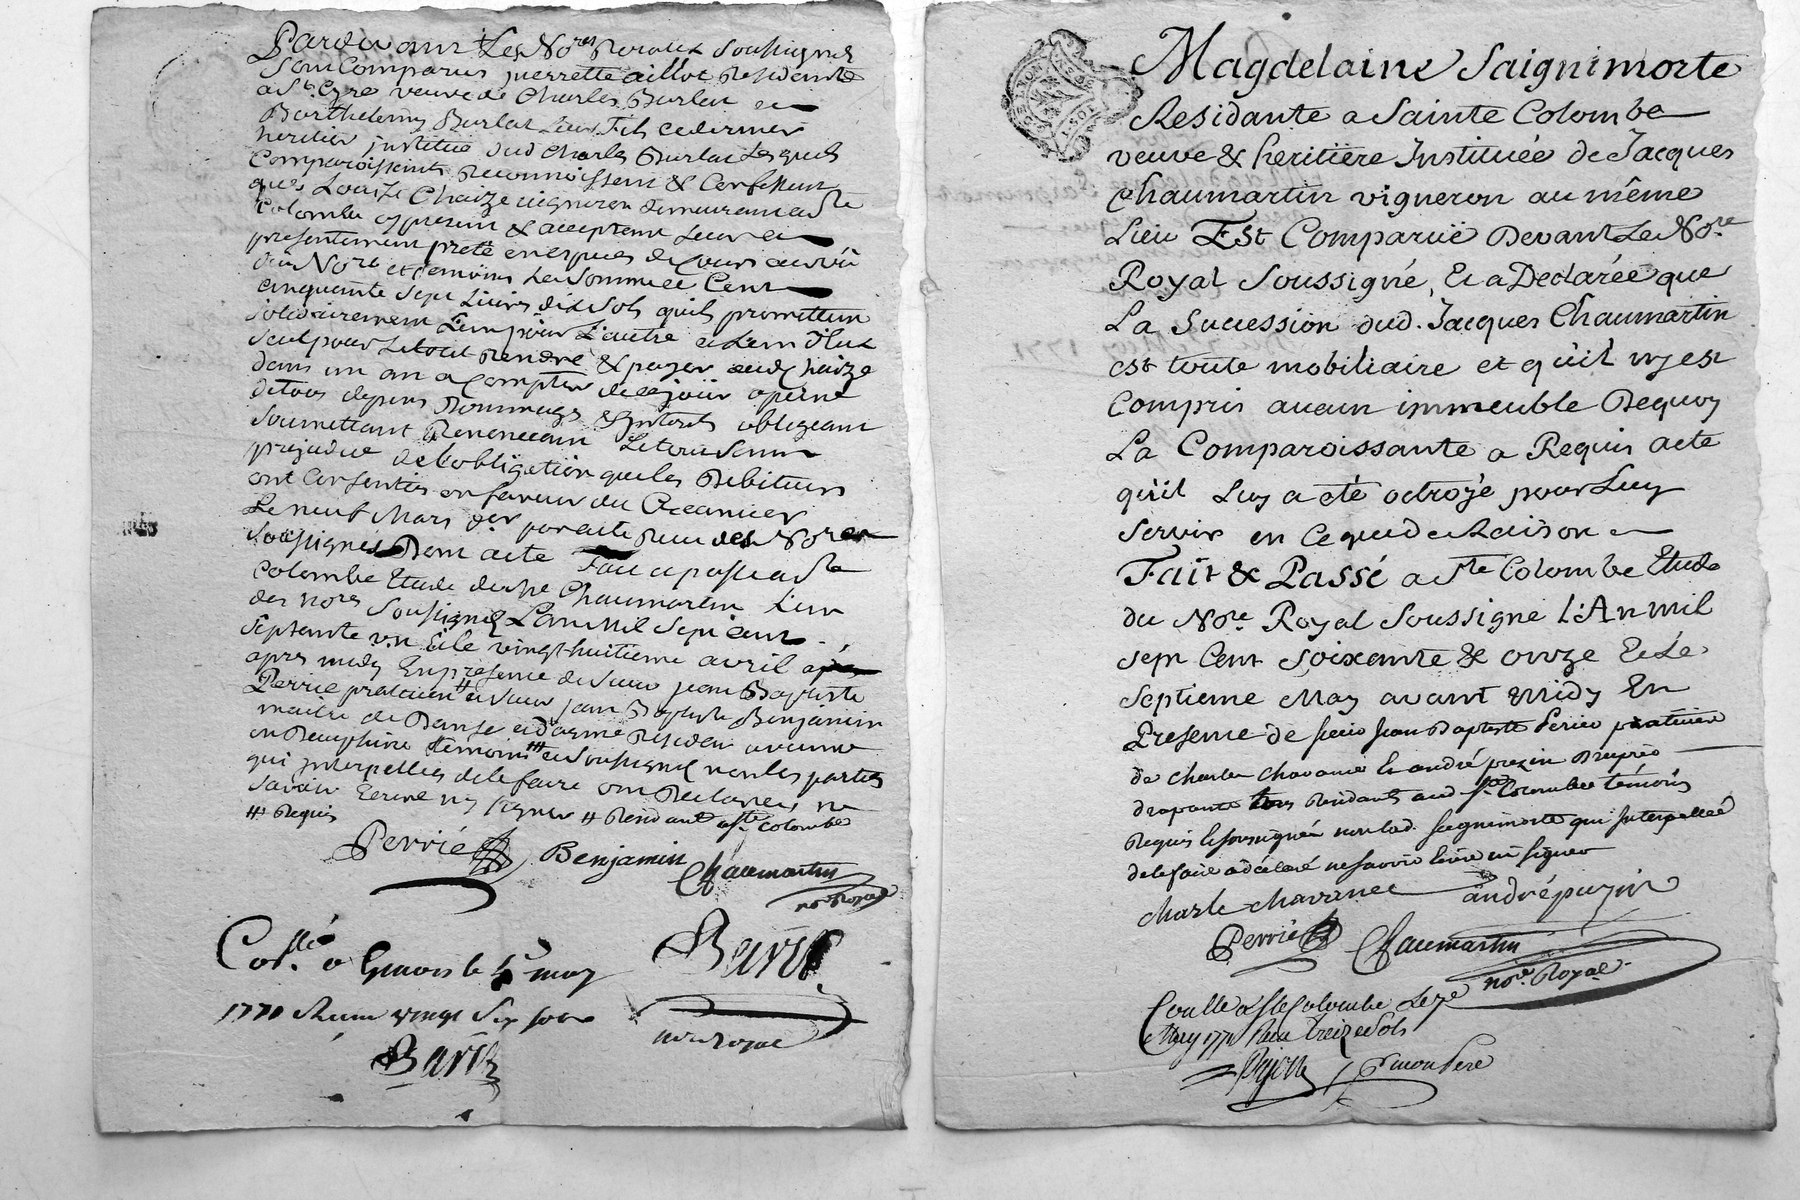 Pardevant Les No.res Royaux Soussignés
Sont Comparus pierrette aillot Residante
a St. Cyre veuve de Charles Burlat et
Barthelemy Burlat Leur Fils et dernier
heritier jnstitué dud Charles Burlat Lesquels
Comparoissents Reconnoissent & Confessent
que Loüis Chaize vigneron demeurant a Ste
Colombe cy present & acceptant Leur a
presentement preté en especes de Cours au vû
du No.re et temoins La Somme de Cent
cinquante Sept Livres dix Sols qu'ils promettent
solidairement L'un pour L'autre et L'un D'eux
seul pour Le tout Rendre & payer aud Chaize
dans un an a Compter de ce jour a peine
de tous depens Dommages & jnterets obligeant
Soumettant Renoncant Le tout Sans
prejudice de l'obligation que les Debiteurs
ont Consenties en faveur du Creancier
Le neuf Mars der. par acte Recu des No.res
Soussignés Dont acte Fait et passé a Ste
Colombe Etude de Me Chaumartin L'un
des nores Soussignés L'an Mil Sept Cent
Septante un et le vingt-huitieme avril
apres midy En presence de Sieur jean Baptiste
Perrié praticien # et Sieur jean Baptiste Benjamin
maitre de Danse et d'arme Resident a vienne
en Dauphiné temoins ## et Soussignés non les parties
qui jnterpellées de le faire ont Declarées ne
Savoir Ecrire ny signer # Residant a Ste Colombe
## Requis
Perrié Benjamin Chaumartin
nore Royal
Co.llé a Givors le 5 may
1771 Recu vingt Six Sols
Barou
Barou
nore Royal
Magdelaine Saignimorte
Residante a Sainte Colombe
veuve & heritière Instituée de Jacques
Chaumartin vigneron au même
Lieu Est Comparuë Devant Le No.re
Royal Soussigné, Et a Declarée que
La Succession dud. Jacques Chaumartin
est toute mobiliaire et qu'il n'y est
Compris aucun immeuble Dequoy
La Comparoissante a Requis acte
qu'il Luy a eté octroyé pour Luy
Servir en Ce que de Raison
Fait & Passé a Ste Colombe Etude
du No.re Royal Soussigné L'An mil
sept Cent Soixante & onze Et Le
septieme May avant midy En
Presence de sieur Jean Baptiste Perrié praticien
de Charles Chavance Et andré
Residants aud Ste Colombe témoins
Requis Et soussignés non lad. Seignimorte qui Interpellée
de le faire a déclaré ne Savoir Ecrire ni signer
Charle Chavance andré
Perrié Chaumartin
no.re Royal
Conllé a Ste Colombe Le 7e
May 1771 Recu treize Sols